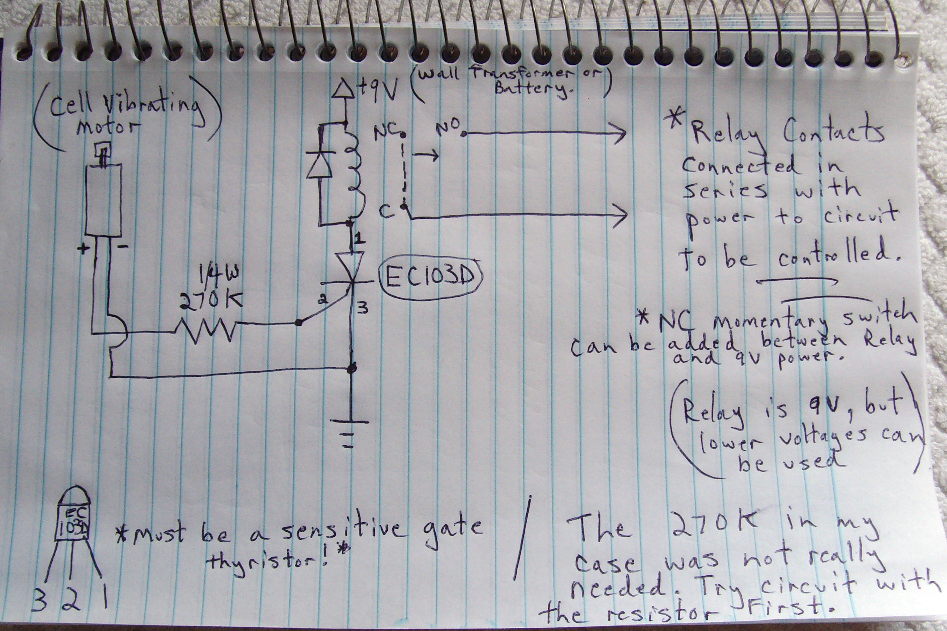 (Cell Vibrating
Motor)
+9V (Wall Transformer or
Battery.)
NC NO
C
+ -
1/4W
270K
1
2
3
EC103D
* Relay Contacts
connected in
series with
power to circuit
to be controlled.
* NC momentary switch
can be added between Relay
and 9V power.
(Relay is 9V, but
lower voltages can
be used)
EC
103D
3 2 1
*Must be a sensitive gate
thyristor!*
The 270K in my
case was not really
needed. Try circuit with
the resistor First.